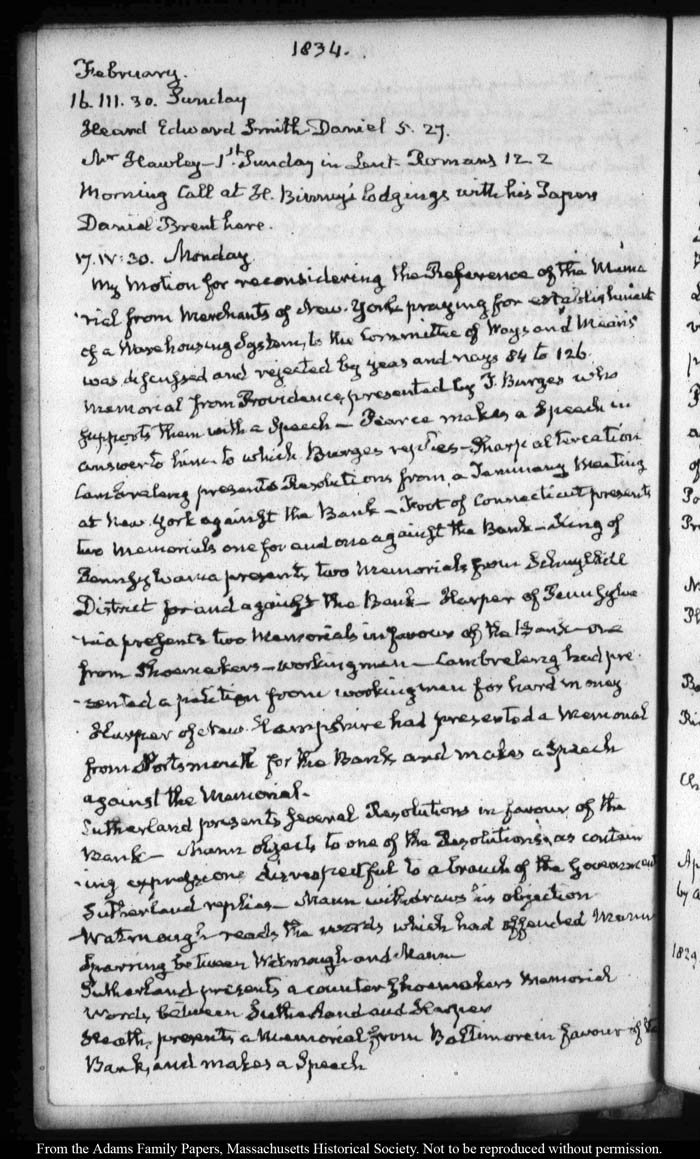 1834.
February.
16. III. 30. Sunday
Heard Edward Smith Daniel 5. 27.
Mr Hawley—1st Sunday in Lent. Romans 12. 2
Morning Call at H. Binney's Lodgings with his Papers
Daniel Brent here.
17. IV: 30. Monday
My Motion for reconsidering the Reference of the Memo
-rial from Merchants of New-York praying for establishment
of a Warehousing System, to the Committee of Ways and Means
was discussed and rejected by yeas and nays 84 to 126.
Memorial from Providence, presented by T. Burges who
supports them with a Speech — Pearce makes a Speech in
answer to him to which Burges replies—Sharp altercation
Cambreleng presents Resolutions from a Tammany Meeting
at New-York against the Bank—Foot of Connecticut presents
two Memorials one for and one against the Bank—King of
Pennsylvania presents two Memorials from Schuylkill
District for and against the Bank—Harper of Pennsylva
-nia presents two Memorials in favour of the Bank—one
from Shoemakers—workingmen—Cambreleng had pre-
-sented a petition from workingmen for hard money
Harper of New-Hampshire had presented a Memorial
from Portsmouth for the Bank, and makes a Speech
against the Memorial.
Sutherland presents several Resolutions in favour of the
Bank—Mann objects to one of the Resolutions, as contain
-ing expressions disrespectful to a branch of the Government
Sutherland replies—Mann withdraws his objection
Watmough reads the words which had offended Mann
Sparring between Watmough and Mann
Sutherland presents a counter Shoemakers Memorial
Words between Sutherland and Harper
Heath, presents a Memorial from Baltimore in favour of the
Bank, and makes a Speech
1829
From the Adams Family Papers, Massachusetts Historical Society. Not to be reproduced without permission.